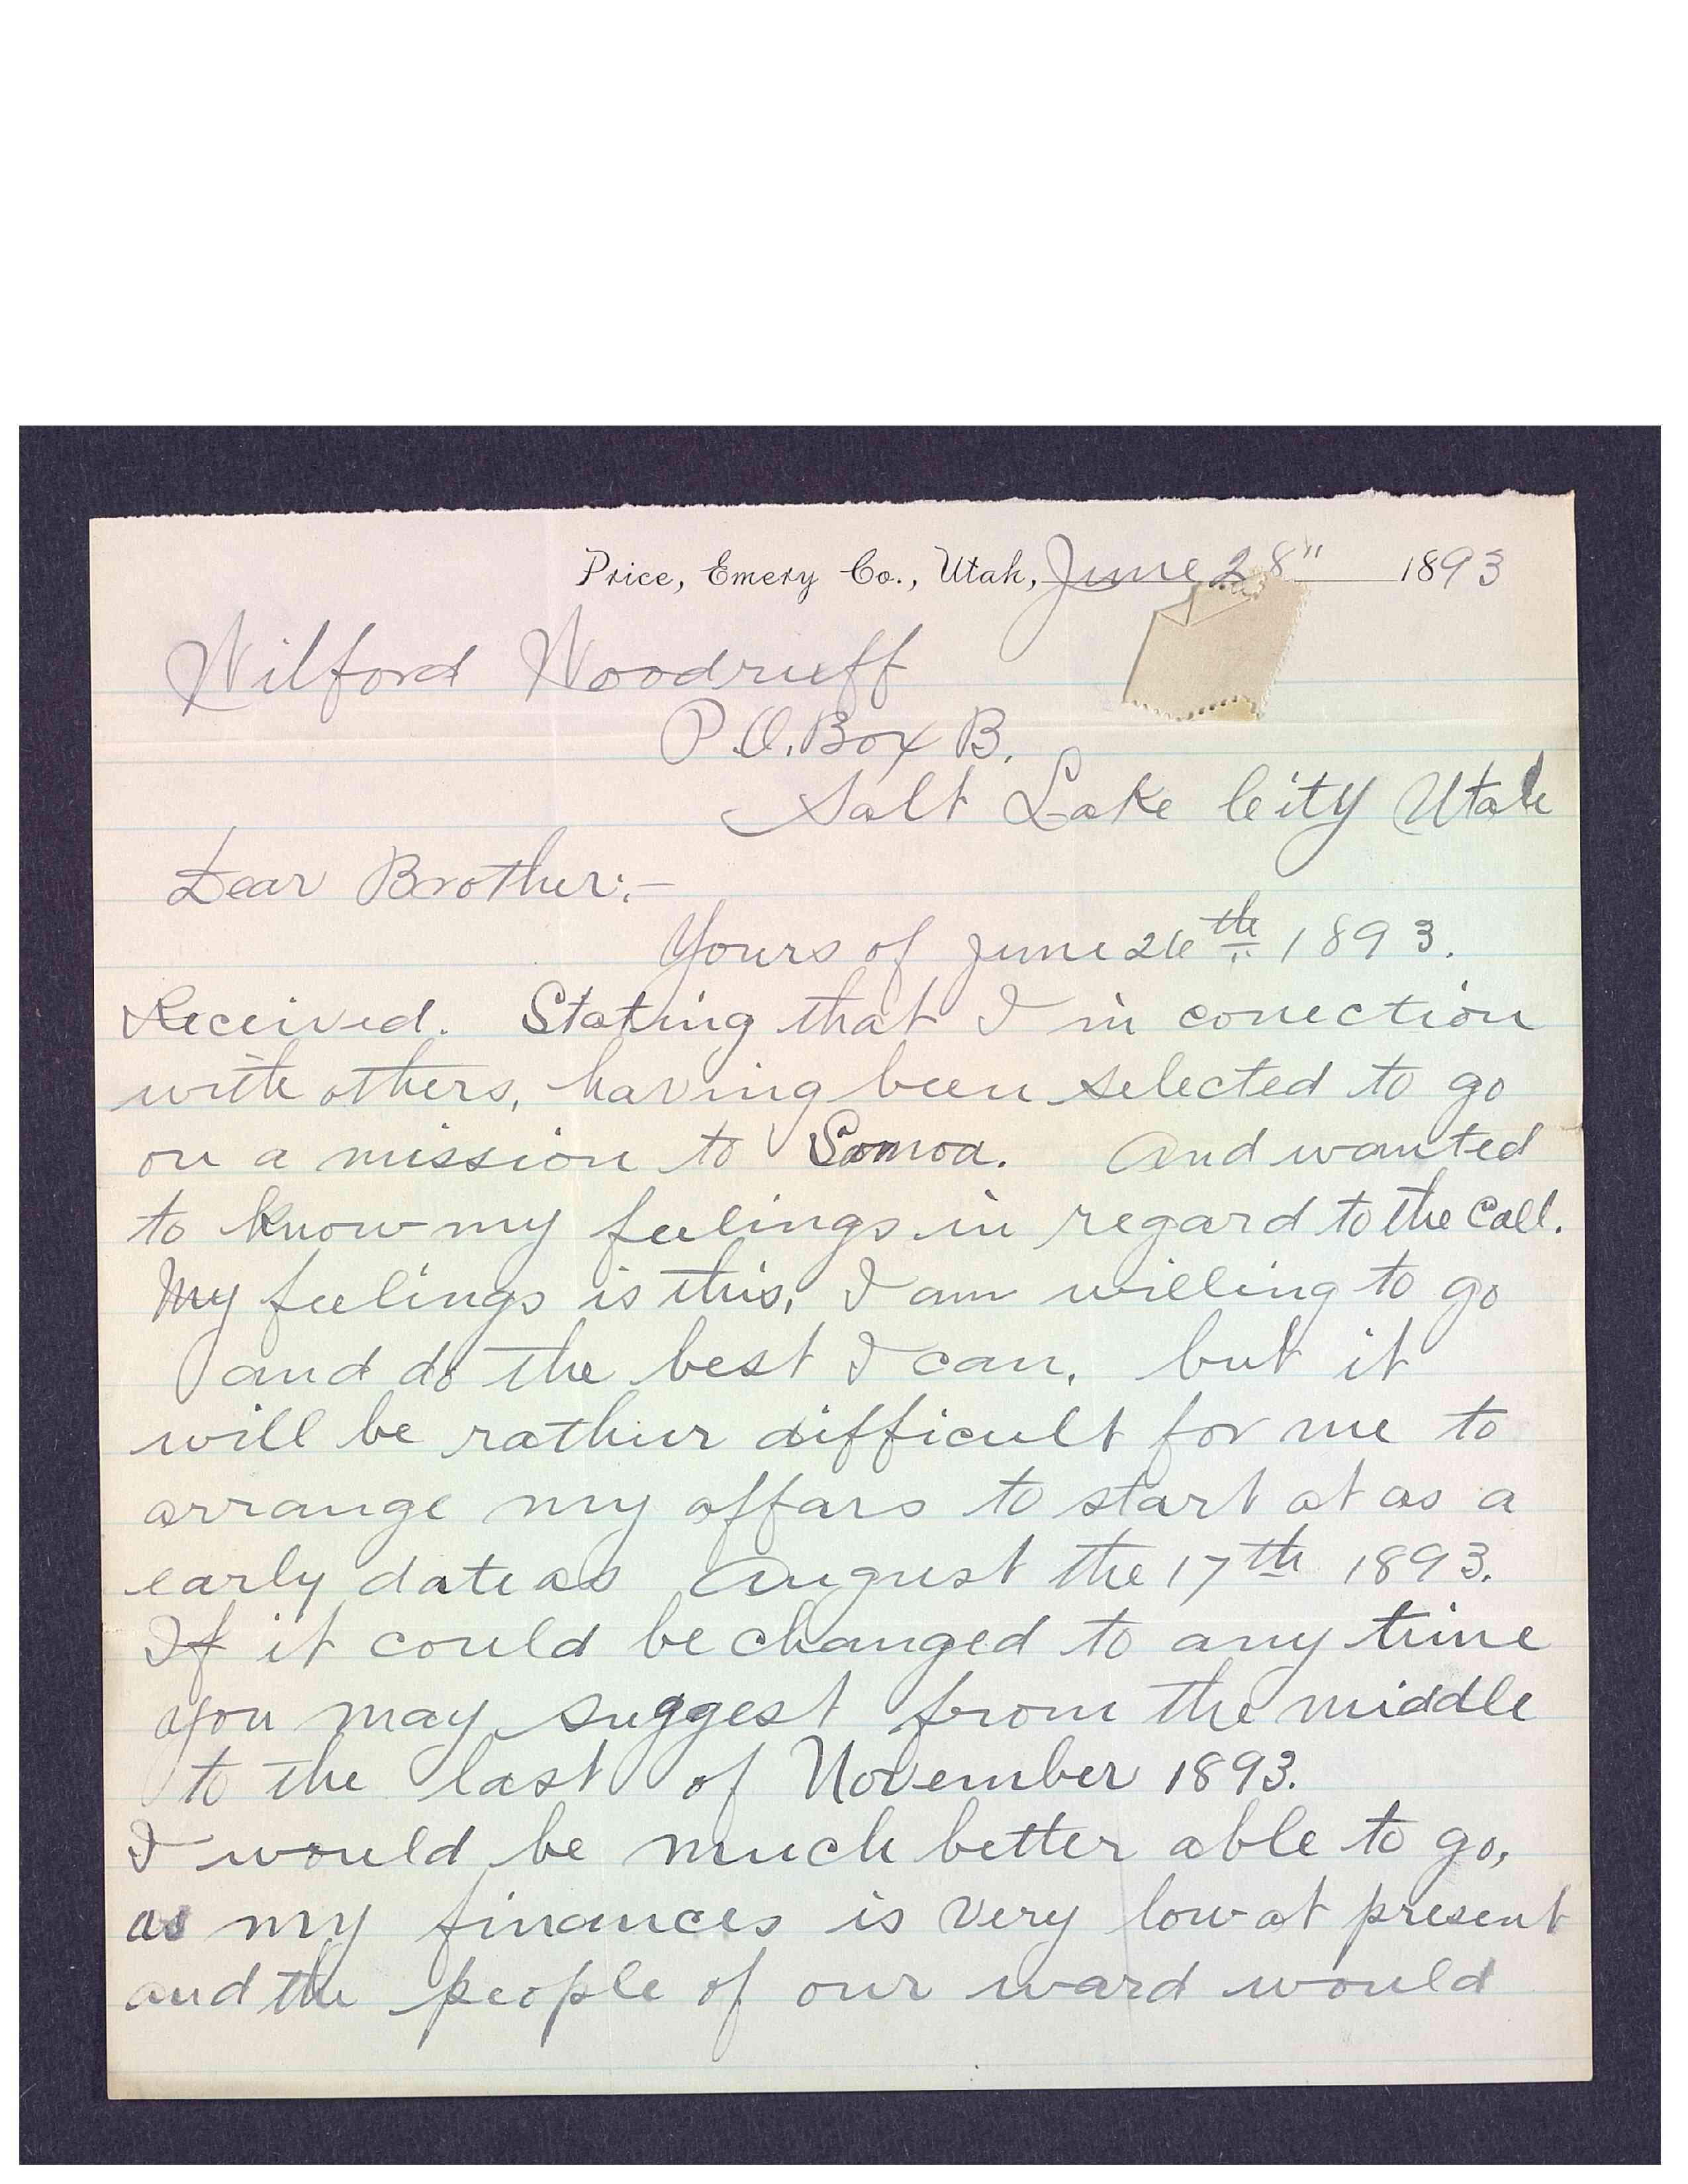 Price, Emery Co., Utah, June 28" 1893
Wilford Woodruff
P.O. Box B.
Salt Lake City Utah
Dear Brother:-
Yours of June 26th 1893.
Received. Stating that I in conection
with others, having been selected to go
on a mission to Samoa. And wanted
to know my feelings in regard to the Call.
My feelings is this, I am willing to go
and do the best I can, but it
will be rather difficult for me to
arrange my affars to start at as a
early date as August the 17th 1893.
If it could be changed to any time
you may suggest from the middle
to the last of November 1893.
I would be much better able to go,
as my finances is very low at present
and the people of our ward would